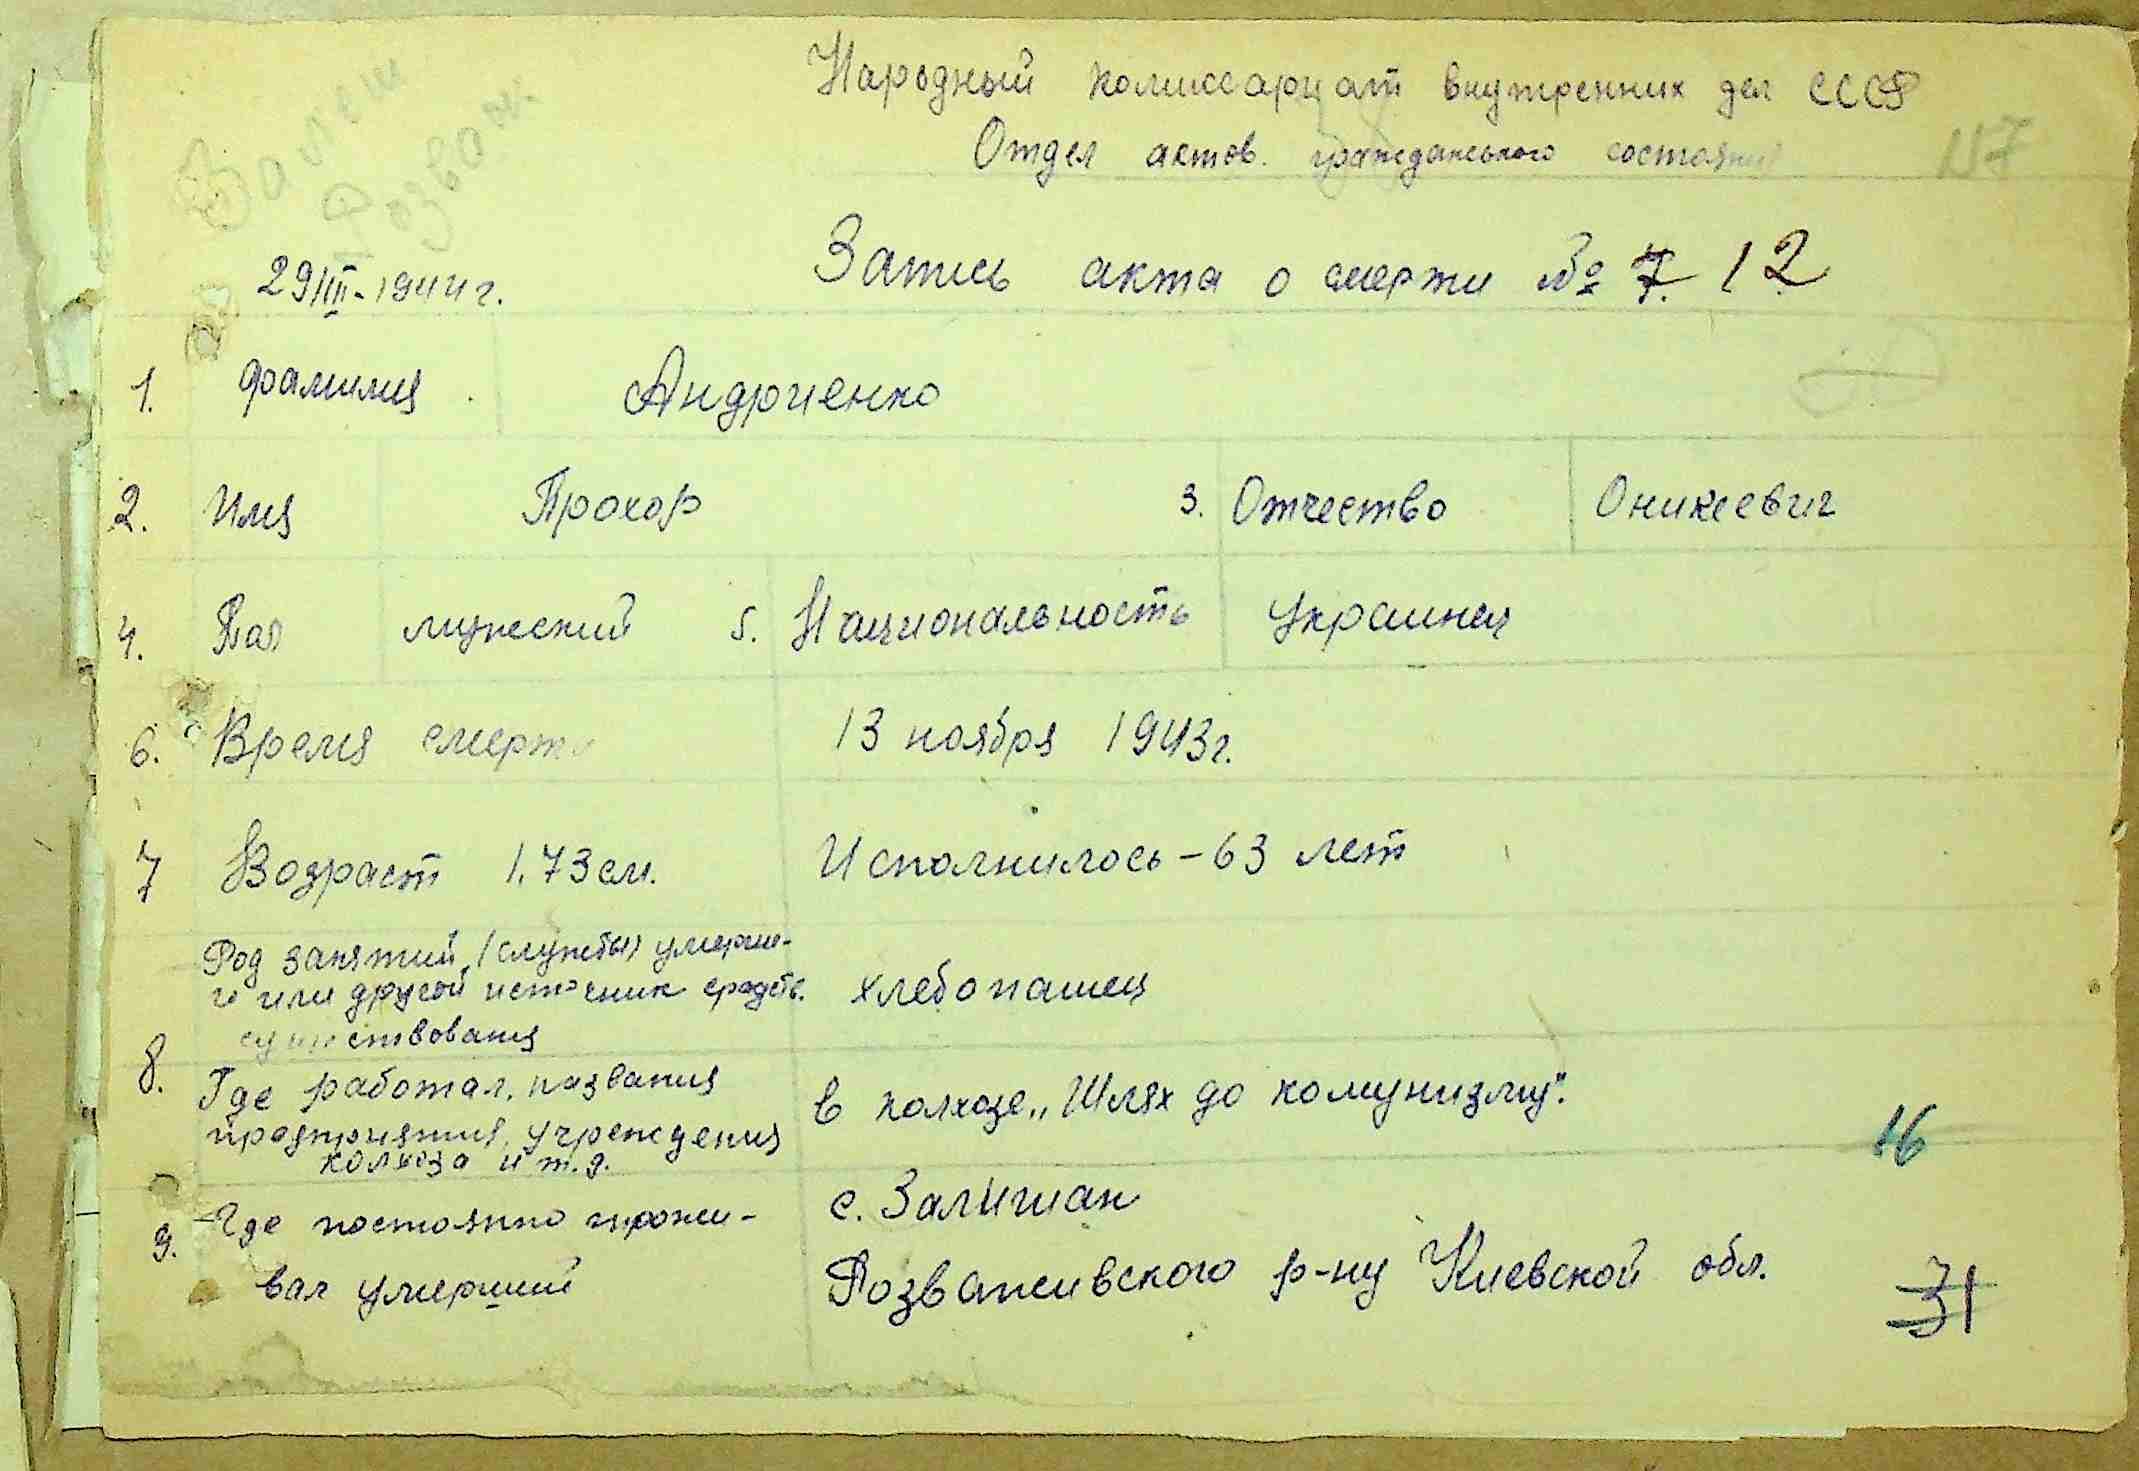 Народный комиссариат внутренних дел СССР
Отдел актов. гражданського состояния
N7
Розваж.
29/III-1944 г.
Запись акта о смерти № 7. 12
1. фамилия Андриенко
2. Имя Прохор 3. Отчество Оникеевич
4. Пол мужеский 5. Национальность украинец
6. Время смерти 13 ноября 1943 г.
7 Возраст 1.73 см. Исполнилось - 63 лет
Род занятий (службы) умерше-
го или другой источник средств. хлебопашец
существования
8. Где работал, названия в колхозе „Шлях до комунизму".
предприятия, учреждения
колхоза и т.д.
16
9. Где постоянно прожи- с. Залишан
вал умерший Розваживского р-ну Киевской обл.
31